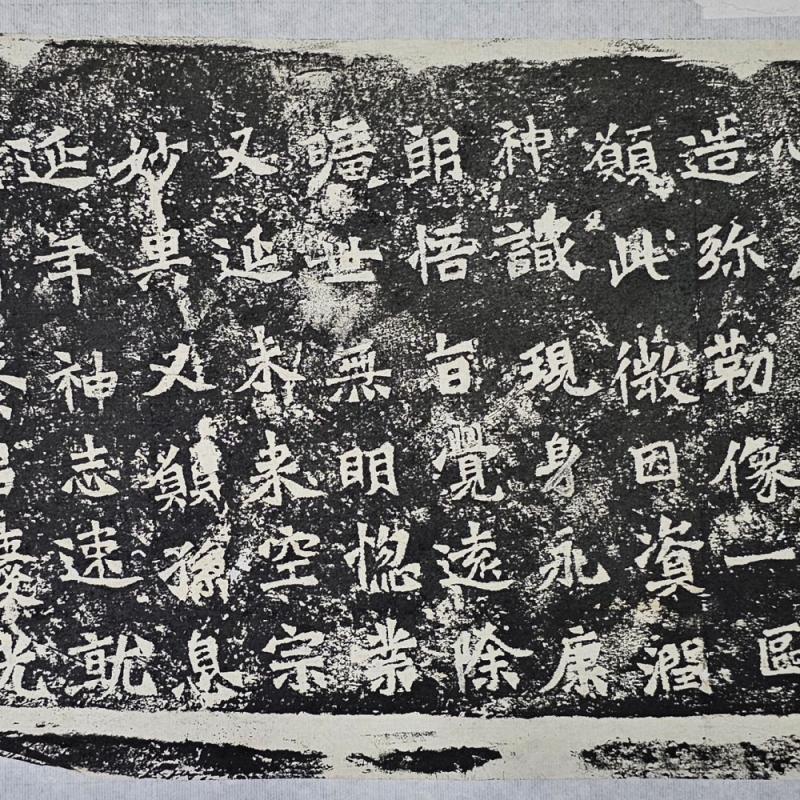 造弥勒像一區
願此微因資潤
神識現身永康
朗悟旨覺遠除
曠世無明惚業
又延未来空宗
妙果又願孫息
延年神志速就